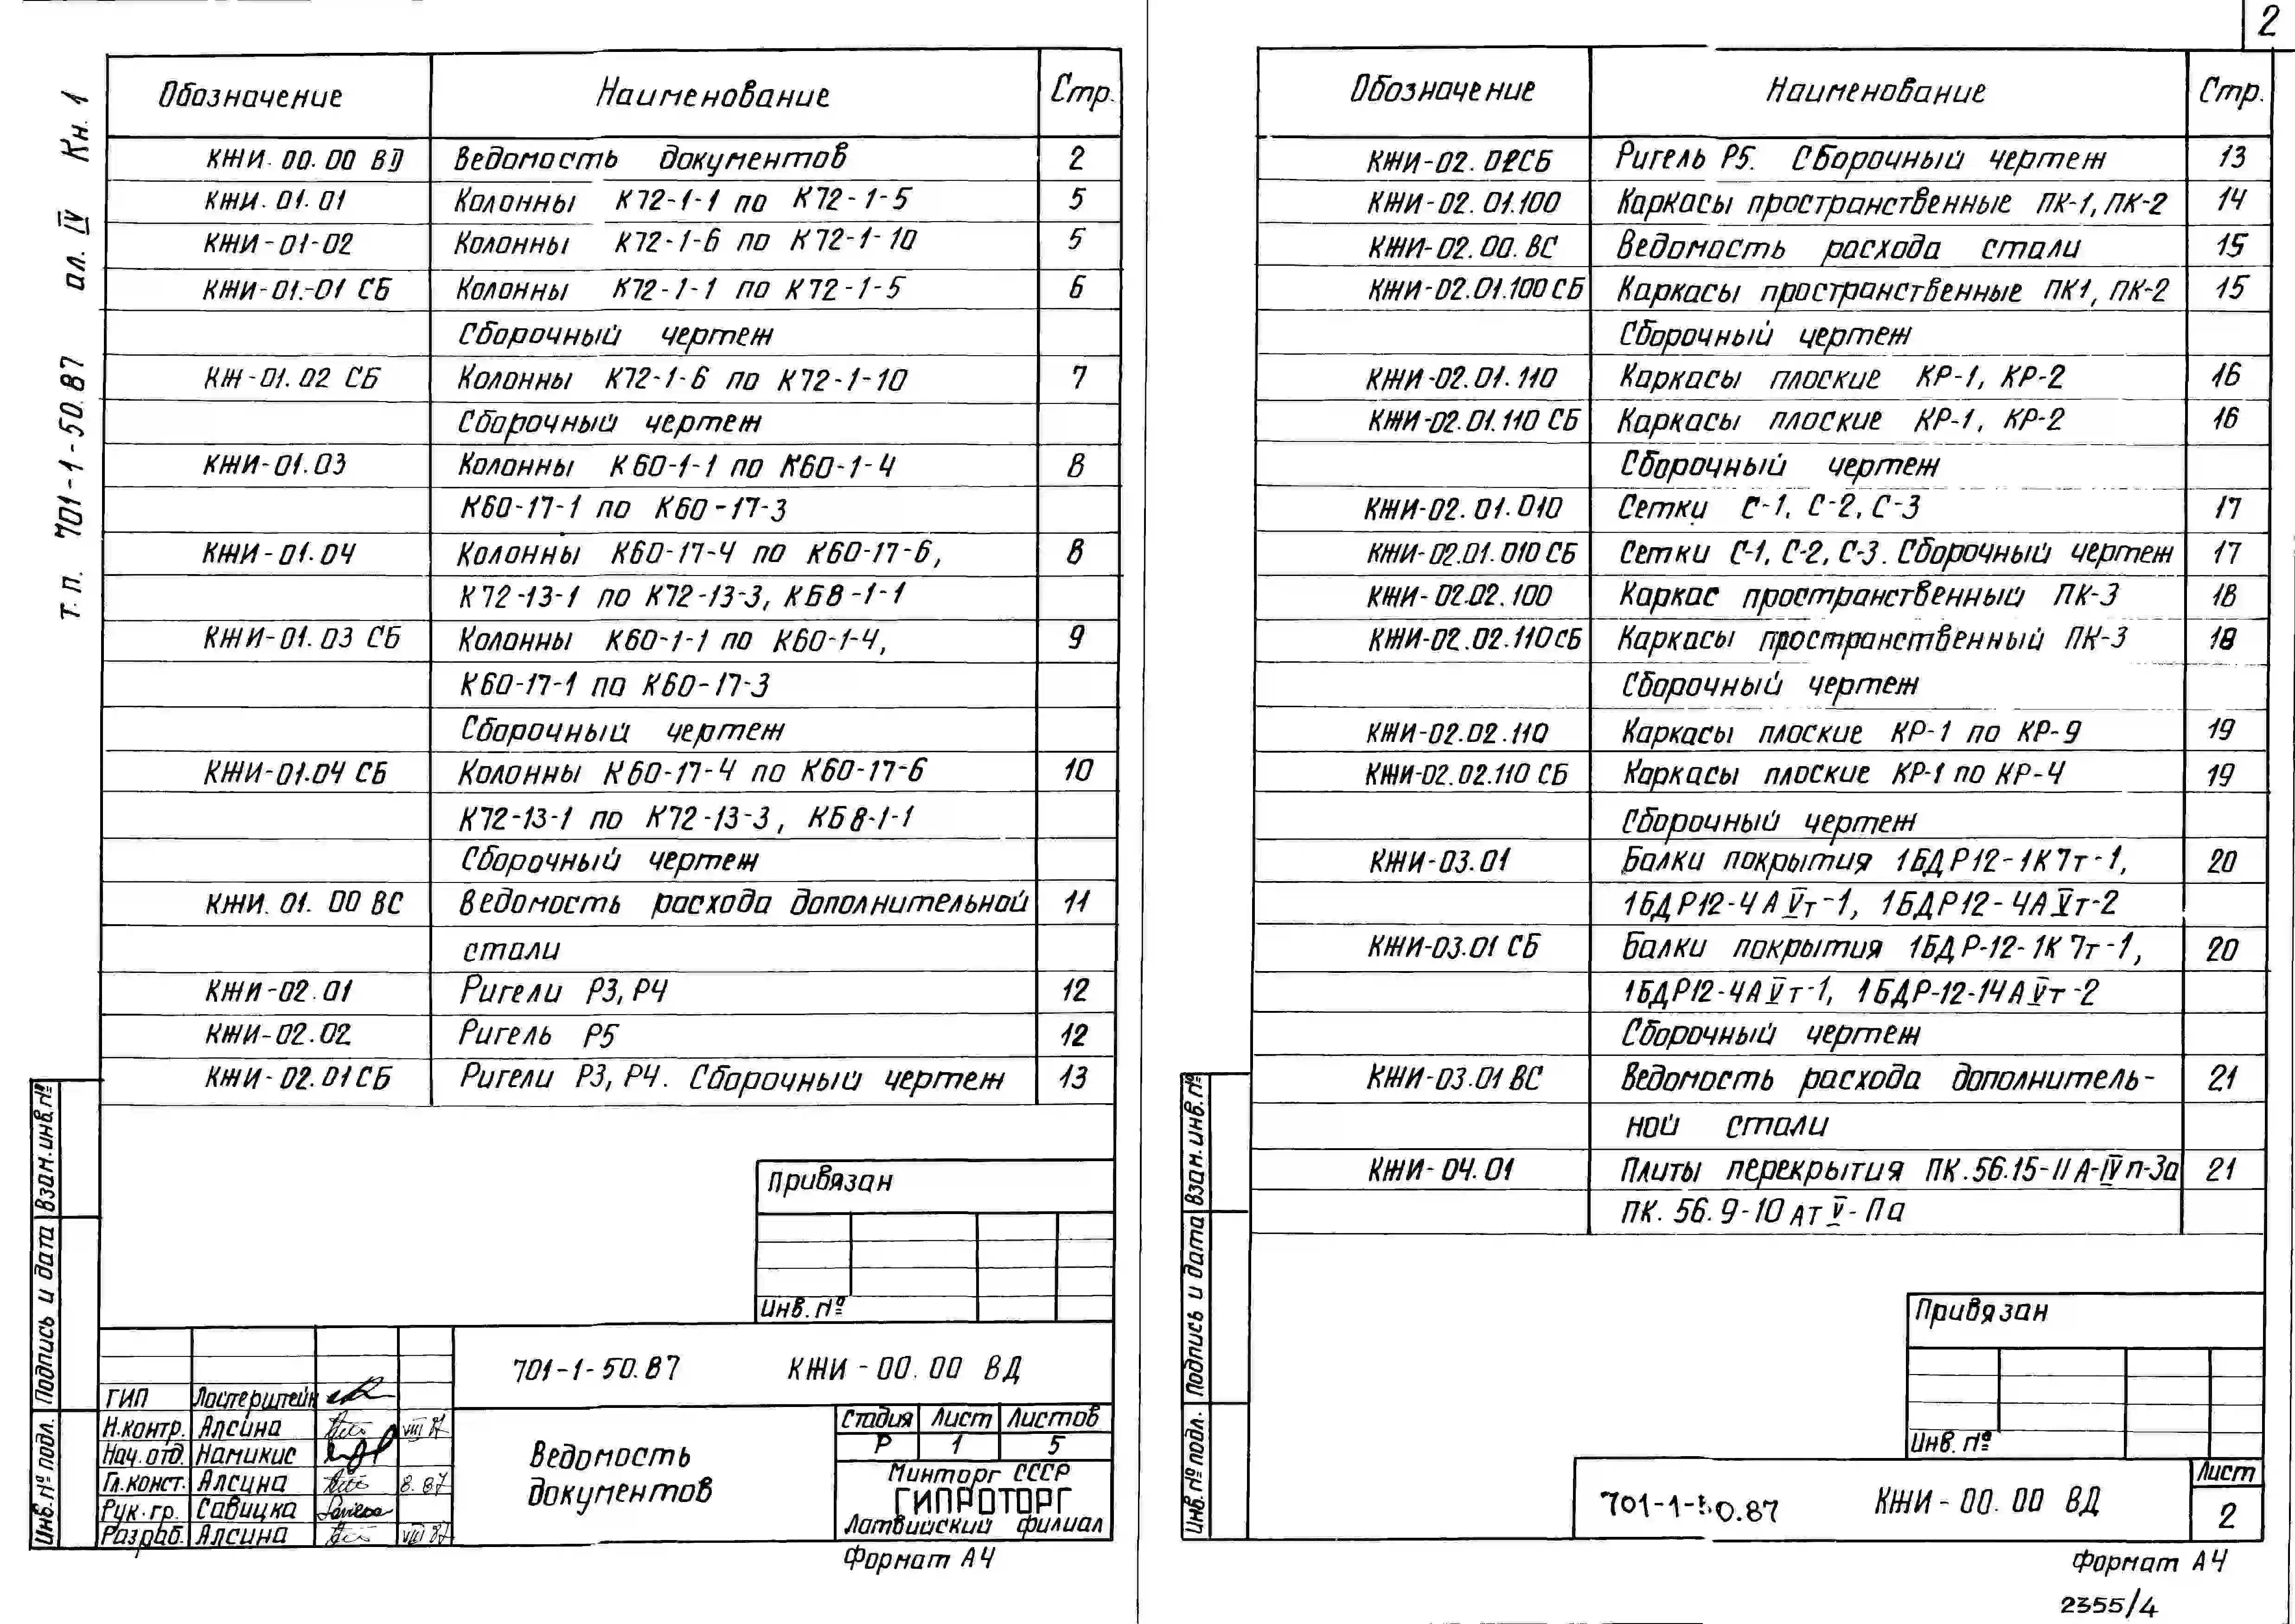 2
т.п. 701-1-50.87 ал. IV Кн. 1
Обозначение Наименование Стр.
КЖИ-00.00 ВД Ведомость документов 2
КЖИ-01.01 Колонны К72-1-1 по К72-1-5 5
КЖИ-01-02 Колонны К72-1-6 по К72-1-10 5
КЖИ-01.-01 СБ Колонны К72-1-1 по К72-1-5 6
Сборочный чертеж
КЖ-01.02 СБ Колонны К72-1-6 по К72-1-10 7
Сборочный чертеж
КЖИ-01.03 Колонны К60-1-1 по К60-1-4 8
К60-17-1 по К60-17-3
КЖИ-01.04 Колонны К60-17-4 по К60-17-6, 8
К72-13-1 по К72-13-3, КБ8-1-1
КЖИ-01.03 СБ Колонны К60-1-1 по К60-1-4, 9
К60-17-1 по К60-17-3
Сборочный чертеж
КЖИ-01.04 СБ Колонны К60-17-4 по К60-17-6 10
К72-13-1 по К72-13-3, КБ8-1-1
Сборочный чертеж
КЖИ. 01. 00 ВС Ведомость расхода дополнительной 11
стали
КЖИ-02.01 Ригели Р3, Р4 12
КЖИ-02.02 Ригель Р5 12
КЖИ-02.01СБ Ригели Р3, Р4. Сборочный чертеж 13
Привязан
Инв. №
701-1-50.87 КЖИ-00.00 ВД
ГИП Ластерштейн
Н.контр. Алсина VIII 87
Нач.отд. Намикис
Гл.конст. Алсина 8.87
Рук.гр. Савицка
Разраб. Алсина VIII 87
Ведомость
документов
Стадия Лист Листов
Р 1 5
Минторг СССР
ГИПРОТОРГ
Латвийский филиал
Формат А4
Взам.инв.№
Подпись и дата
Инв.№ подл.
Обозначение Наименование Стр.
КЖИ-02.02СБ Ригель Р5. Сборочный чертеж 13
КЖИ-02.01.100 Каркасы пространственные ПК-1, ПК-2 14
КЖИ-02.00.ВС Ведомость расхода стали 15
КЖИ-02.01.100СБ Каркасы пространственные ПК1, ПК-2 15
Сборочный чертеж
КЖИ-02.01.110 Каркасы плоские КР-1, КР-2 16
КЖИ-02.01.110 СБ Каркасы плоские КР-1, КР-2 16
Сборочный чертеж
КЖИ-02.01.010 Сетки С-1, С-2, С-3 17
КЖИ-02.01.010 СБ Сетки С-1, С-2, С-3. Сборочный чертеж 17
КЖИ-02.02.100 Каркас пространственный ПК-3 18
КЖИ-02.02.110СБ Каркасы пространственный ПК-3 18
Сборочный чертеж
КЖИ-02.02.110 Каркасы плоские КР-1 по КР-9 19
КЖИ-02.02.110 СБ Каркасы плоские КР-1 по КР-4 19
Сборочный чертеж
КЖИ-03.01 Балки покрытия 1БДР12-1К7т-1, 20
1БДР12-4АVт-1, 1БДР12-4АVт-2
КЖИ-03.01 СБ Балки покрытия 1БДР-12-1К7т-1, 20
1БДР12-4АVт-1, 1БДР-12-14АVт-2
Сборочный чертеж
КЖИ-03.01 ВС Ведомость расхода дополнитель- 21
ной стали
КЖИ-04.01 Плиты перекрытия ПК.56.15-11А-IVп-3а 21
ПК.56.9-10АтV-Па
Привязан
Инв. №
701-1-50.87 КЖИ-00.00 ВД
Лист
2
Формат А4
2355/4
Взам.инв.№
Подпись и дата
Инв.№ подл.